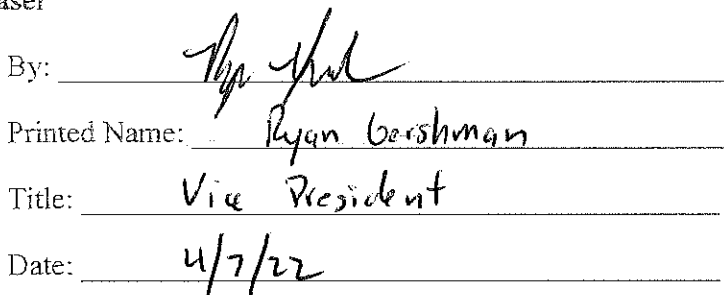 By:
Printed Name: Ryan Gershman
Title: Vice President
Date: 4/7/22